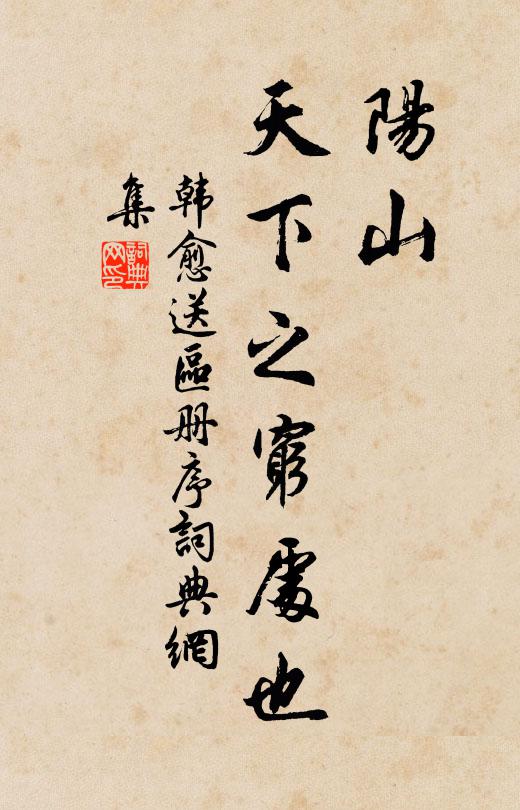 陽山
天下之窮處也
韩愈送區册序詞典網
集
詞典
网印